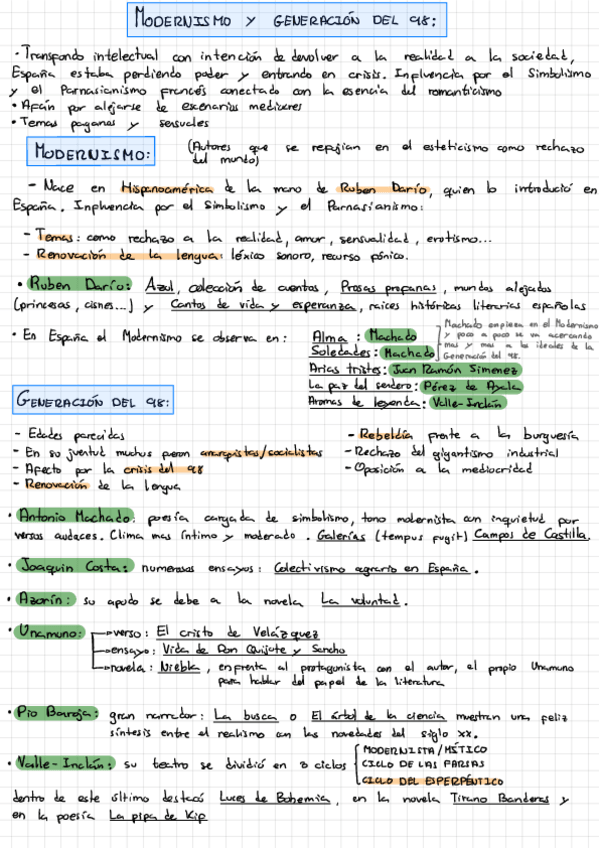 MODERNISMO Y GENERACIÓN DEL 98:
· Transfondo intelectual con intención de devolver a la realidad a la sociedad,
España estaba perdiendo poder y entrando en crisis. Influencia por el Simbolismo
y el Parnasianismo francés conectado con la esencia del romanticismo
• Afán por alejarse de escenarios mediocres
• Temas paganos y sensuales
MODERNISMO: (Autores que se refugian en el esteticismo como rechazo
del mundo)
- Nace en Hispanoamérica de la mano de Ruben Darío, quien lo introdució en
España. Influencia por el Simbolismo y el Parnasianismo:
- Temas: como rechazo a la realidad, amor, sensualidad, erotismo...
- Renovación de la lengua: léxico sonoro, recurso fónico.
• Ruben Darío: Azul, colección de cuentos, Prosas profanas, mundos alejados
(princesas, cisnes...) y Cantos de vida y esperanza, raíces históricas literarias españolas
• En España el Modernismo se observa en: Alma: Machado
Soledades: Machado
Machado empieza en el Modernismo
y poco a poco se va acercando
mas y mas a los ideales de la
Generación del 98.
Arias tristes: Juan Ramón Simenez
La paz del sendero: Pérez de Ayala
Aromas de leyenda: Valle-Inclán
GENERACIÓN DEL 98:
- Edades parecidas
- En su juventud muchos fueron anarquistas/socialistas
- Afecto por la crisis del 98
- Renovación de la lengua
- Rebeldía frente a la burguesía
- Rechazo del gigantismo industrial
- Oposición a la mediocridad
· Antonio Machado: poesía cargada de simbolismo, tono modernista con inquietud por
versos audaces. Clima mas íntimo y moderado. Galerías (tempus fugit) Campos de Castilla.
· Joaquin Costa: numerosos ensayos: Colectivismo agrario en España.
· Azorín: su apodo se debe a la novela La voluntad.
· Unamuno: verso: El cristo de Velázquez
ensayo: Vida de Don Quijote y Sancho
novela: Niebla, enfrenta al protagonista con el autor, el propio Unamuno
para hablar del papel de la literatura
· Pío Baroja: gran narrador: La busca o El árbol de la ciencia muestran una feliz
síntesis entre el realismo con las novedades del siglo XX.
· Valle-Inclán: su teatro se dividió en 3 ciclos
MODERNISTA/MÍTICO
CICLO DE LAS FARSAS
CICLO DEL ESPERPÉNTICO
dentro de este último destacó Luces de Bohemia, en la novela Tirano Banderas y
en la poesía La pipa de Kip